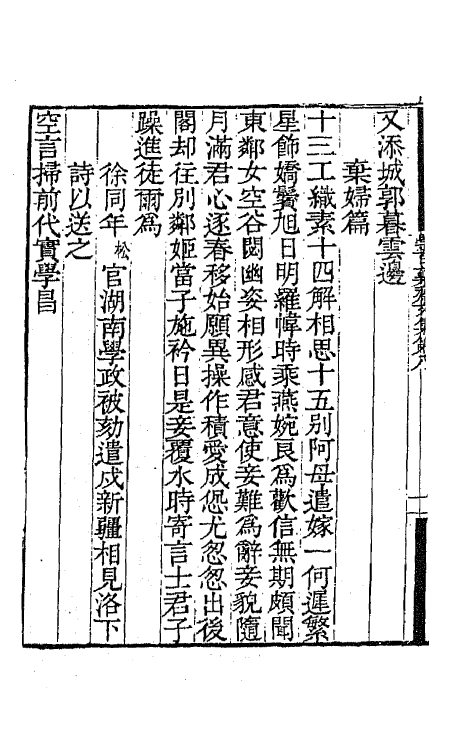 又添城郭暮雲邊
棄婦篇
十三工織素十四解相思十五別阿母遣嫁一何遲繁
星飾嬌鬢旭日明羅幃時乘燕婉良爲歡信無期頗聞
東鄰女空谷閟幽姿相形感君意使妾難爲辭妾貌隨
月滿君心逐春移始願異操作積愛成怨尤怱怱出後
閣却往別鄰姬當子施衿日是妾覆水時寄言士君子
躁進徒爾爲
徐同年松官湖南學政被劾遣戍新疆相見洛下
詩以送之
空言掃前代實學昌